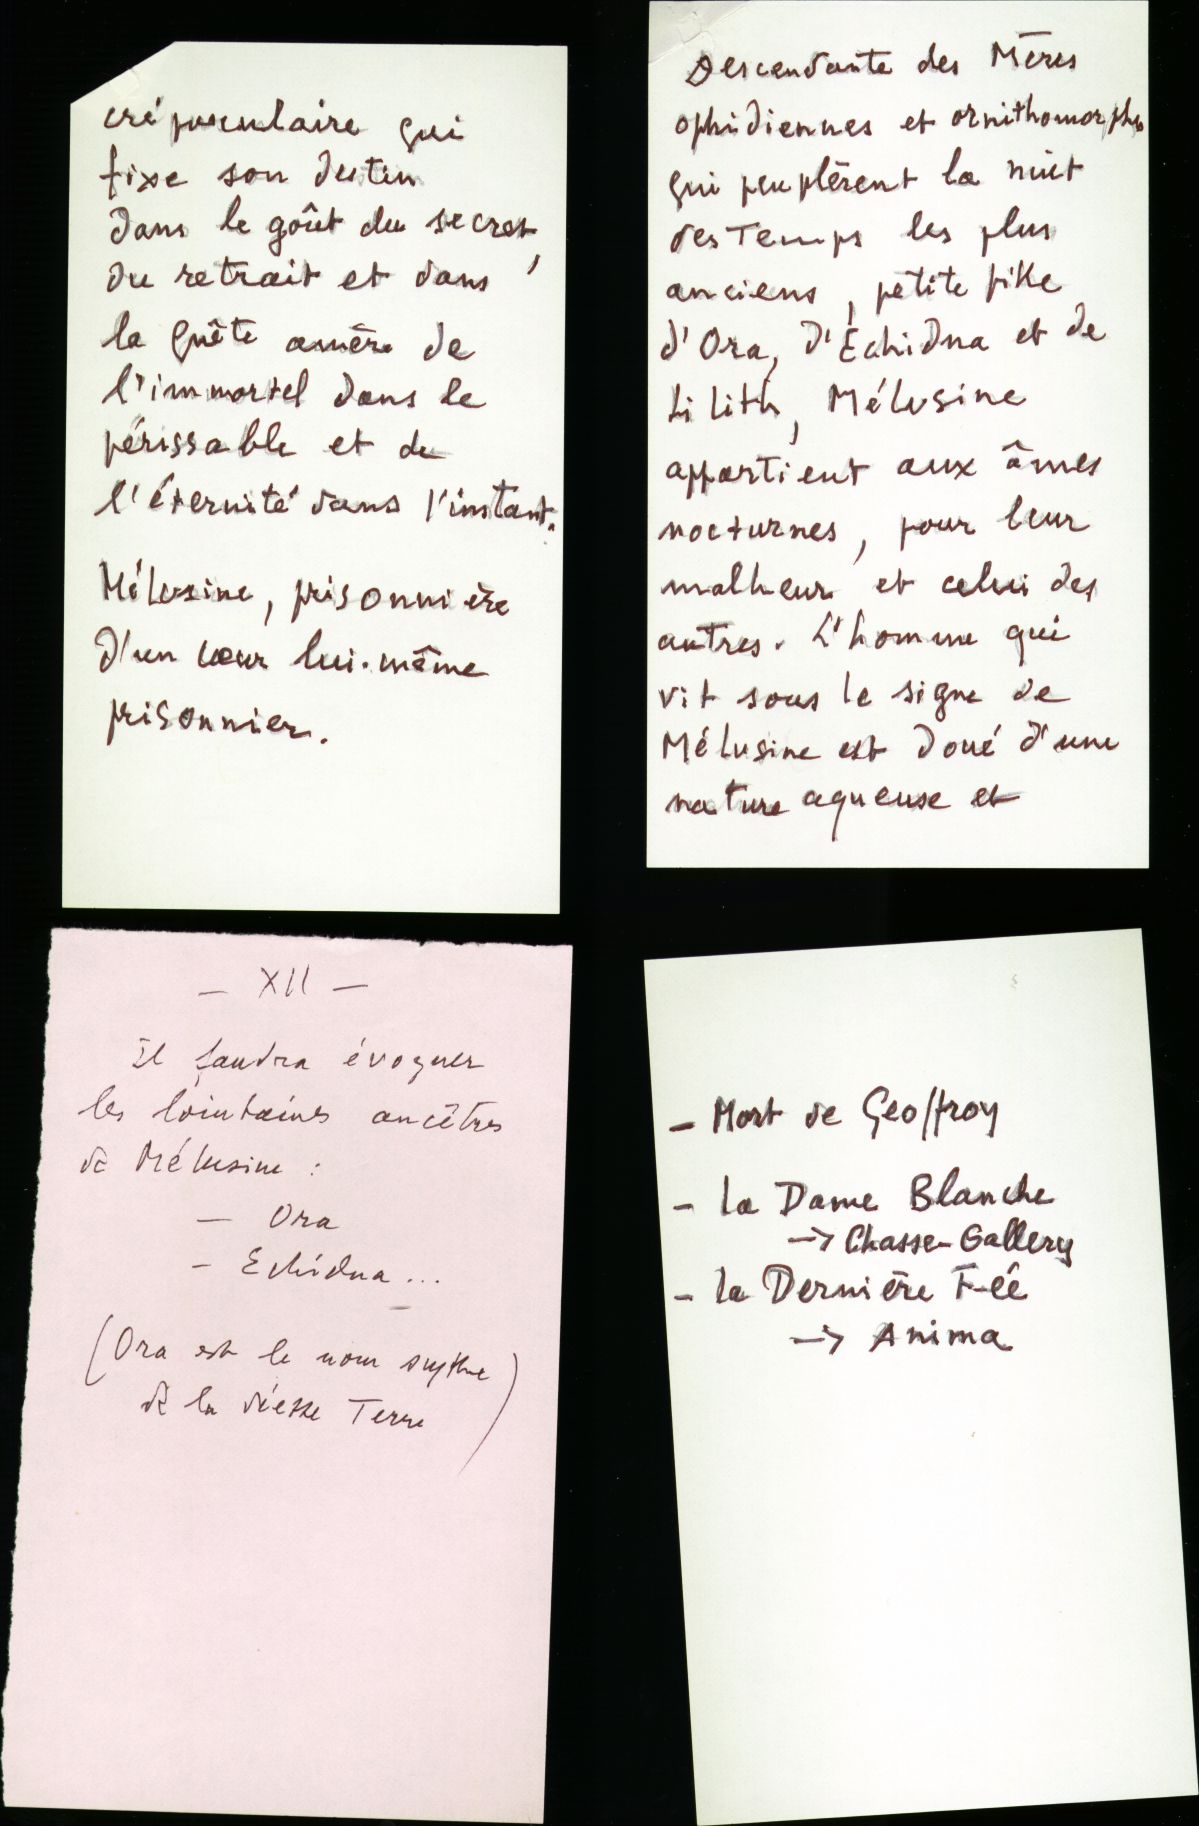 crépusculaire qui
fixe son destin
dans le goût du secret,
du retrait et dans
la quête amère de
l'immortel dans le
périssable et de
l'éternité dans l'instant.
Mélusine, prisonnière
d'un cœur lui-même
prisonnier.
Descendante des Mères
ophidiennes et ornithomorphes
qui peuplèrent la nuit
des Temps les plus
anciens, petite fille
d'Ora, d'Echidna et de
Lilith, Mélusine
appartient aux âmes
nocturnes, pour leur
malheur et celui des
autres. L'homme qui
vit sous le signe de
Mélusine est doué d'une
nature aqueuse et
— XII —
Il faudra évoquer
les lointaines ancêtres
de Mélusine :
— Ora
- Echidna...
(Ora est le nom scythe
de la déesse Terre)
- Mort de Geoffroy
- La Dame Blanche
→ Chasse-Gallery
- la Dernière Fée
→ Anima